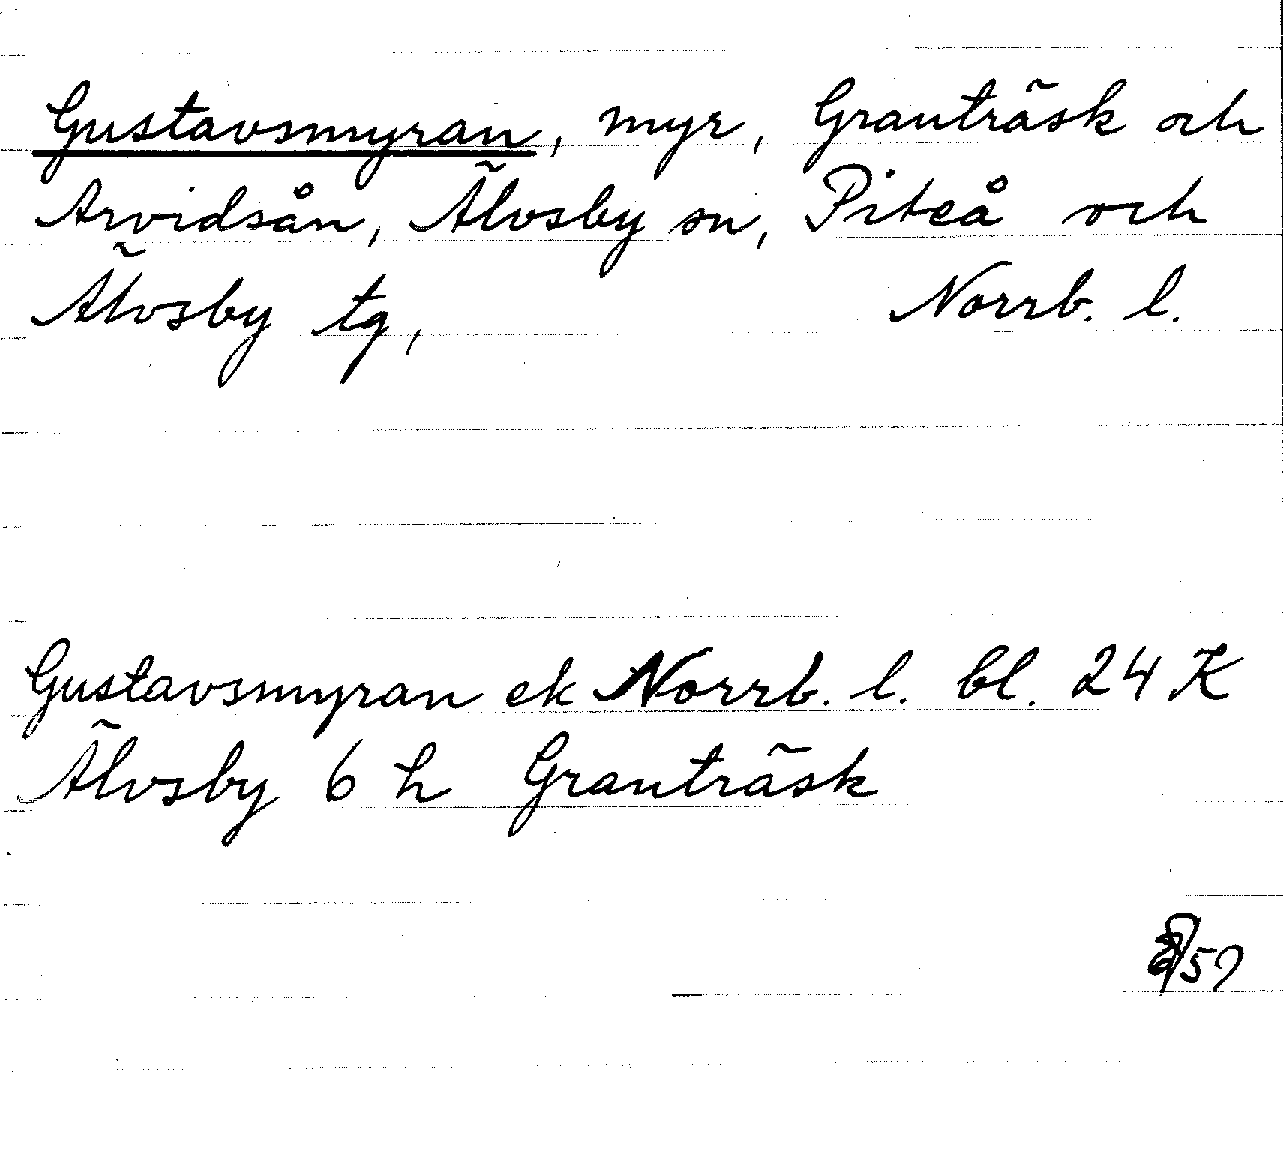 Gustavsmyran, myr, Granträsk och
Arvidsån, Älvsby sn, Piteå och
Älvsby tg, Norrb. l.
Gustavsmyran ek Norrb. l. bl. 24 K
Älvsby 6 h Granträsk